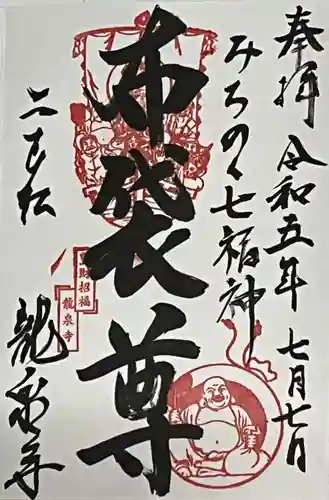 奉拝
令和五年
七月七日
みちのく七福神
布袋尊
二本松
龍泉寺
財招福
龍泉寺